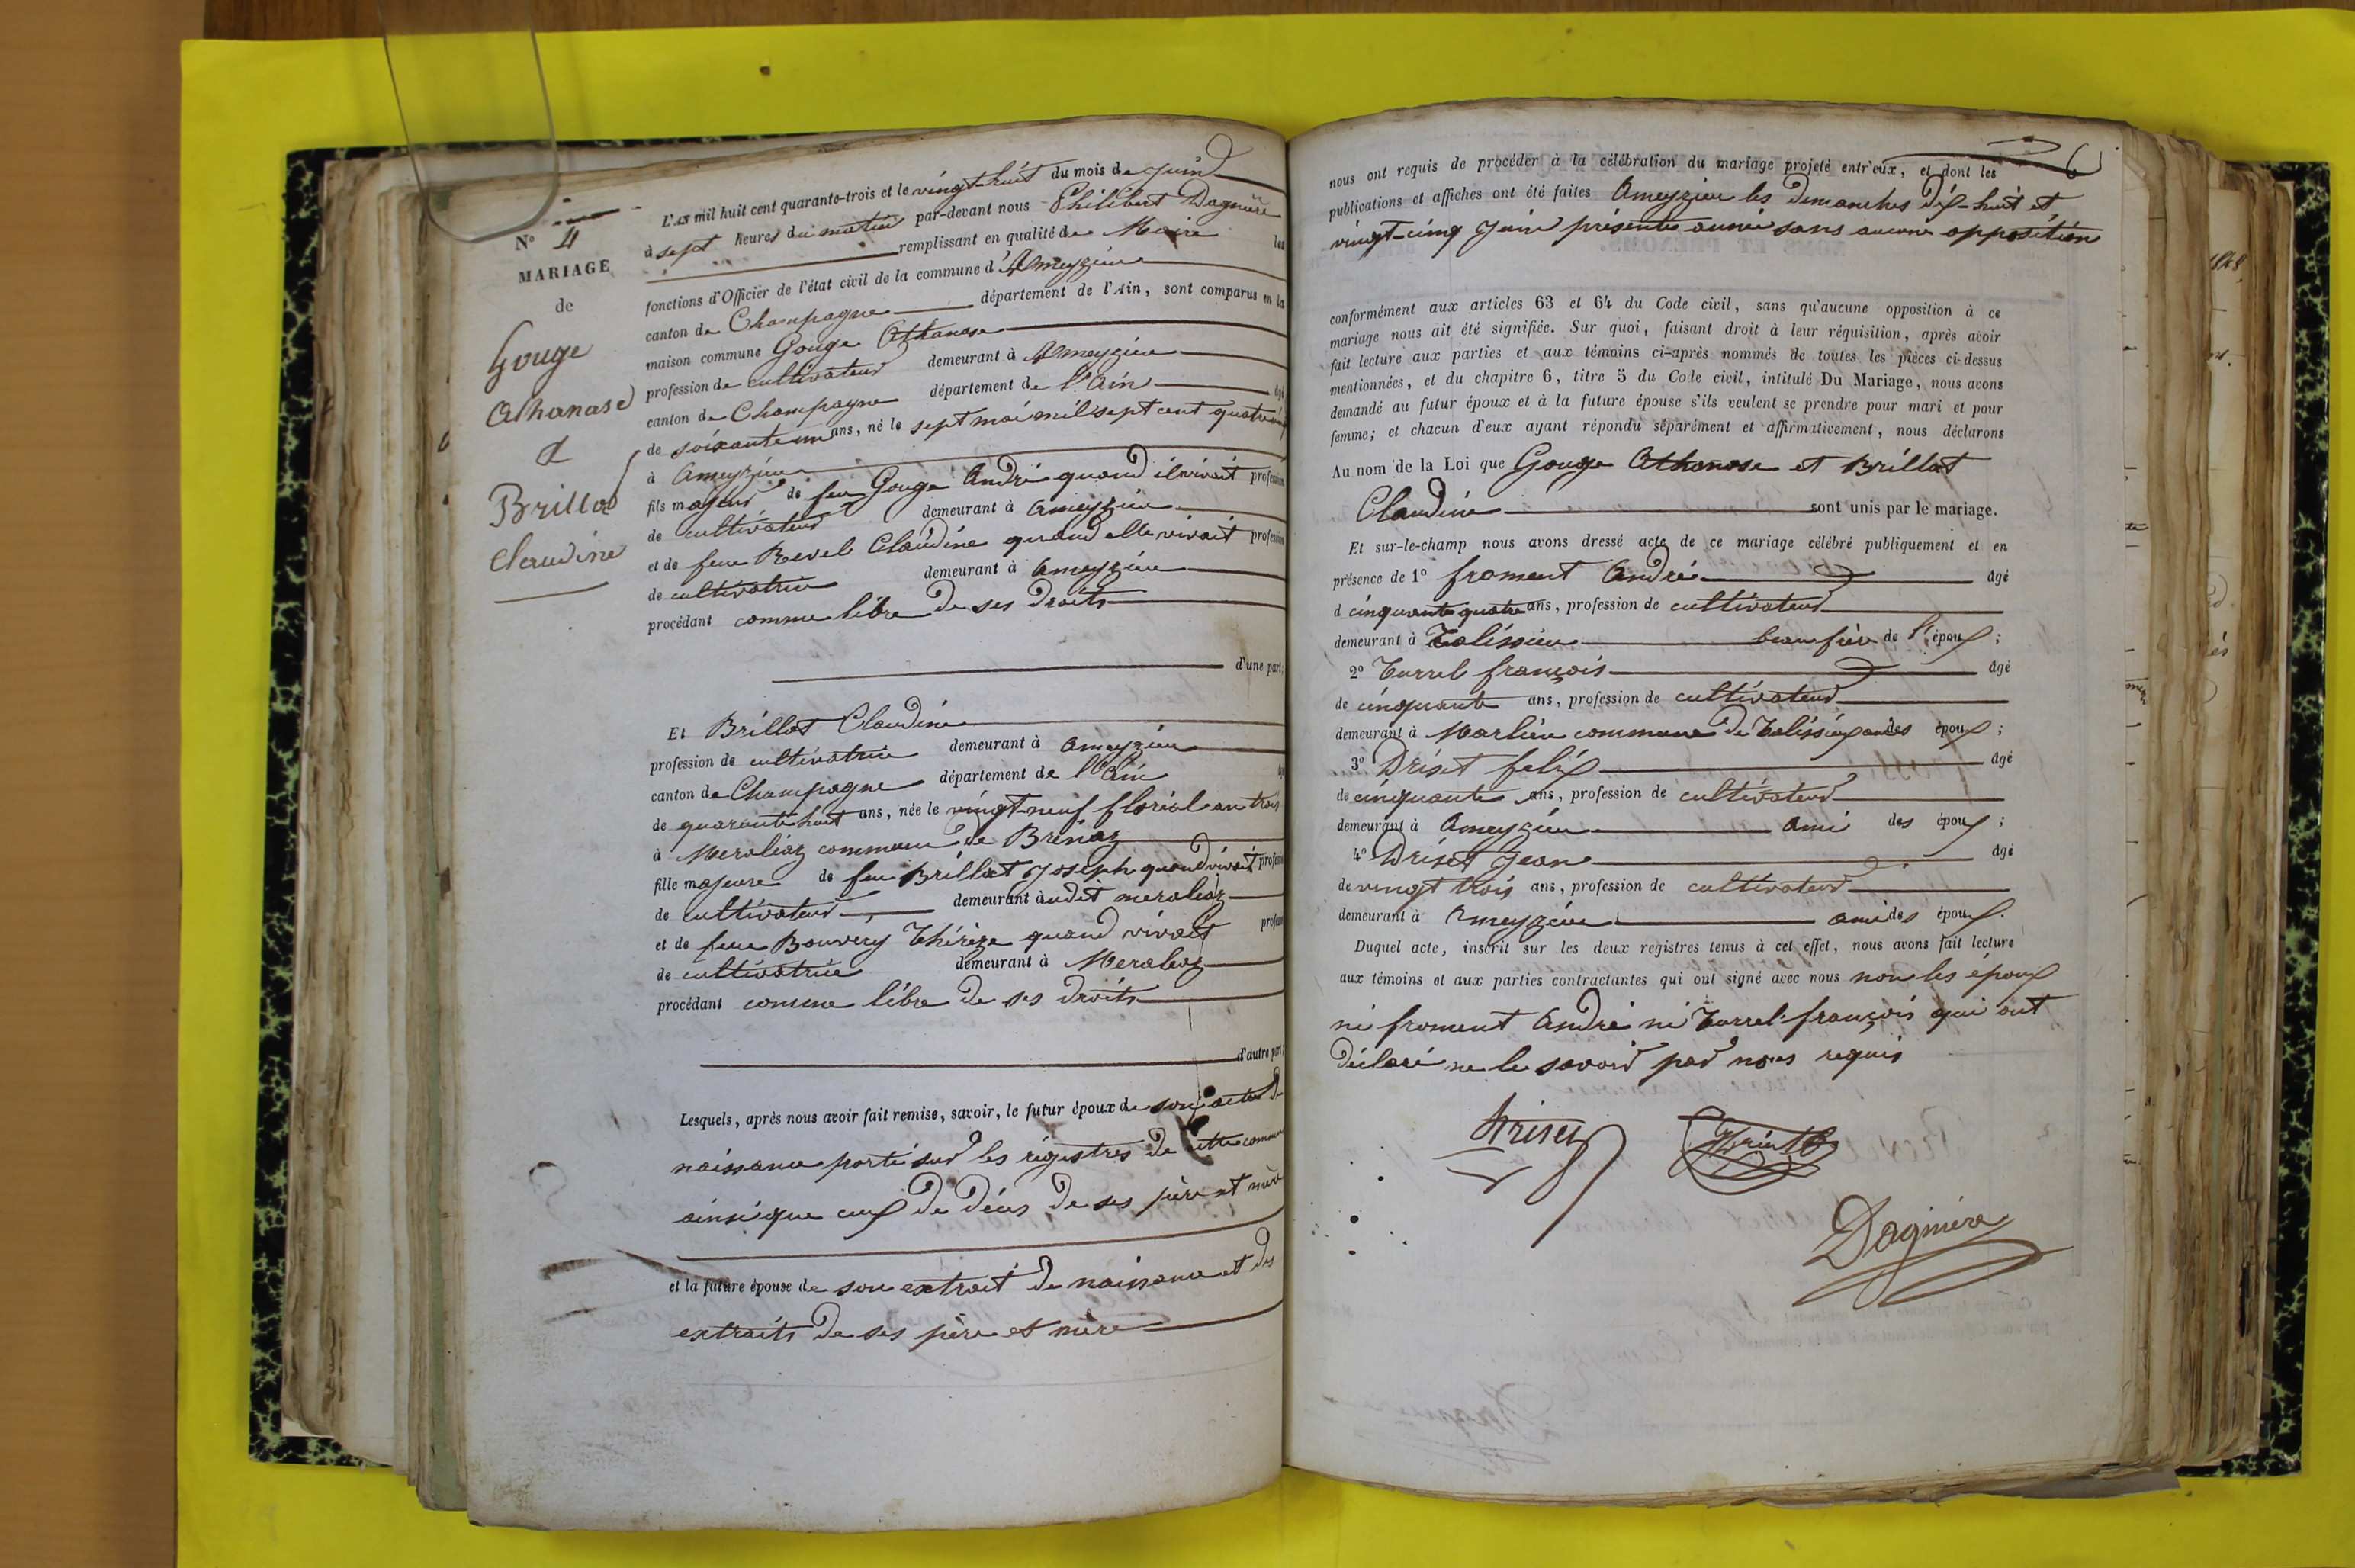 N° 4
MARIAGE
de
Gouge
Athanase
&
Brillat
Claudine
L'AN mil huit cent quarante-trois et le vingt-huit du mois de juin
à sept heures du matin par-devant nous Philibert Dagnière
remplissant en qualité de Maire les
fonctions d'Officier de l'état civil de la commune d'Ameyzieu
canton de Champagne département de l'Ain, sont comparus en la
maison commune Gouge Athanase
profession de cultivateur demeurant à Ameyzieu
canton de Champagne département de l'Ain agé
de soixante un ans, né le sept mai mil sept cent quatre
à Ameyzieu
fils majeur de feu Gouge André quand il vivait profession
de cultivateur demeurant à Ameyzieu
et de feue Revel Claudine quand elle vivait profession
de cultivatrice demeurant à Ameyzieu
procédant comme libre de ses droits
d'une part;
Et Brillat Claudine
profession de cultivatrice demeurant à Ameyzieu
canton de Champagne département de l'Ain
de quarante huit ans, née le vingt-neuf floréal an trois
à Meraleaz commune de Brénaz
fille majeure de feu Brillat Joseph quand vivait profession
de cultivateur demeurant audit meraleaz
et de feue Bouvery Thérèze quand vivait profession
de cultivatrice demeurant à Meraleaz
procédant comme libre de ses droits
d'autre part;
Lesquels, après nous avoir fait remise, savoir, le futur époux de son acte de
naissance porté sur les régistres de cette commune
ainsi que ceux de décès de ses père et mère
et la future épouse de son extrait de naissance et des
extraits de ses père et mère
6
nous ont requis de procéder à la célébration du mariage projeté entr'eux, et dont les
publications et affiches ont été faites Ameyzieu les dimanches dix-huit et
vingt-cinq Juin présente année sans aucune opposition
conformément aux articles 63 et 64 du Code civil, sans qu'aucune opposition à ce
mariage nous ait été signifiée. Sur quoi, faisant droit à leur réquisition, après avoir
fait lecture aux parties et aux témoins ci-après nommés de toutes les pièces ci-dessus
mentionnées, et du chapitre 6, titre 5 du Code civil, intitulé Du Mariage, nous avons
demandé au futur époux et à la future épouse s'ils veulent se prendre pour mari et pour
femme; et chacun d'eux ayant répondu séparément et affirmativement, nous déclarons
Au nom de la Loi que Gouge Athanase et Brillat
Claudine sont unis par le mariage.
Et sur-le-champ nous avons dressé acte de ce mariage célébré publiquement et en
présence de 1° froment André agé
d cinquante quatre ans, profession de cultivateur
demeurant à Talissieu beau frère de l'époux;
2° Turrel françois agé
de cinquante ans, profession de cultivateur
demeurant à Marlieu commune de Talissieu ami des époux;
3° Driset felix agé
de cinquante ans, profession de cultivateur
demeurant à Ameyzieu Ami des époux;
4° Driset Jean agé
de vingt trois ans, profession de cultivateur
demeurant à Ameyzieu ami des époux.
Duquel acte, inscrit sur les deux registres tenus à cet effet, nous avons fait lecture
aux témoins et aux parties contractantes qui ont signé avec nous non les époux
ni froment André ni Turrel françois qui ont
déclaré ne le savoir par nous requis
Driset
Dagniere